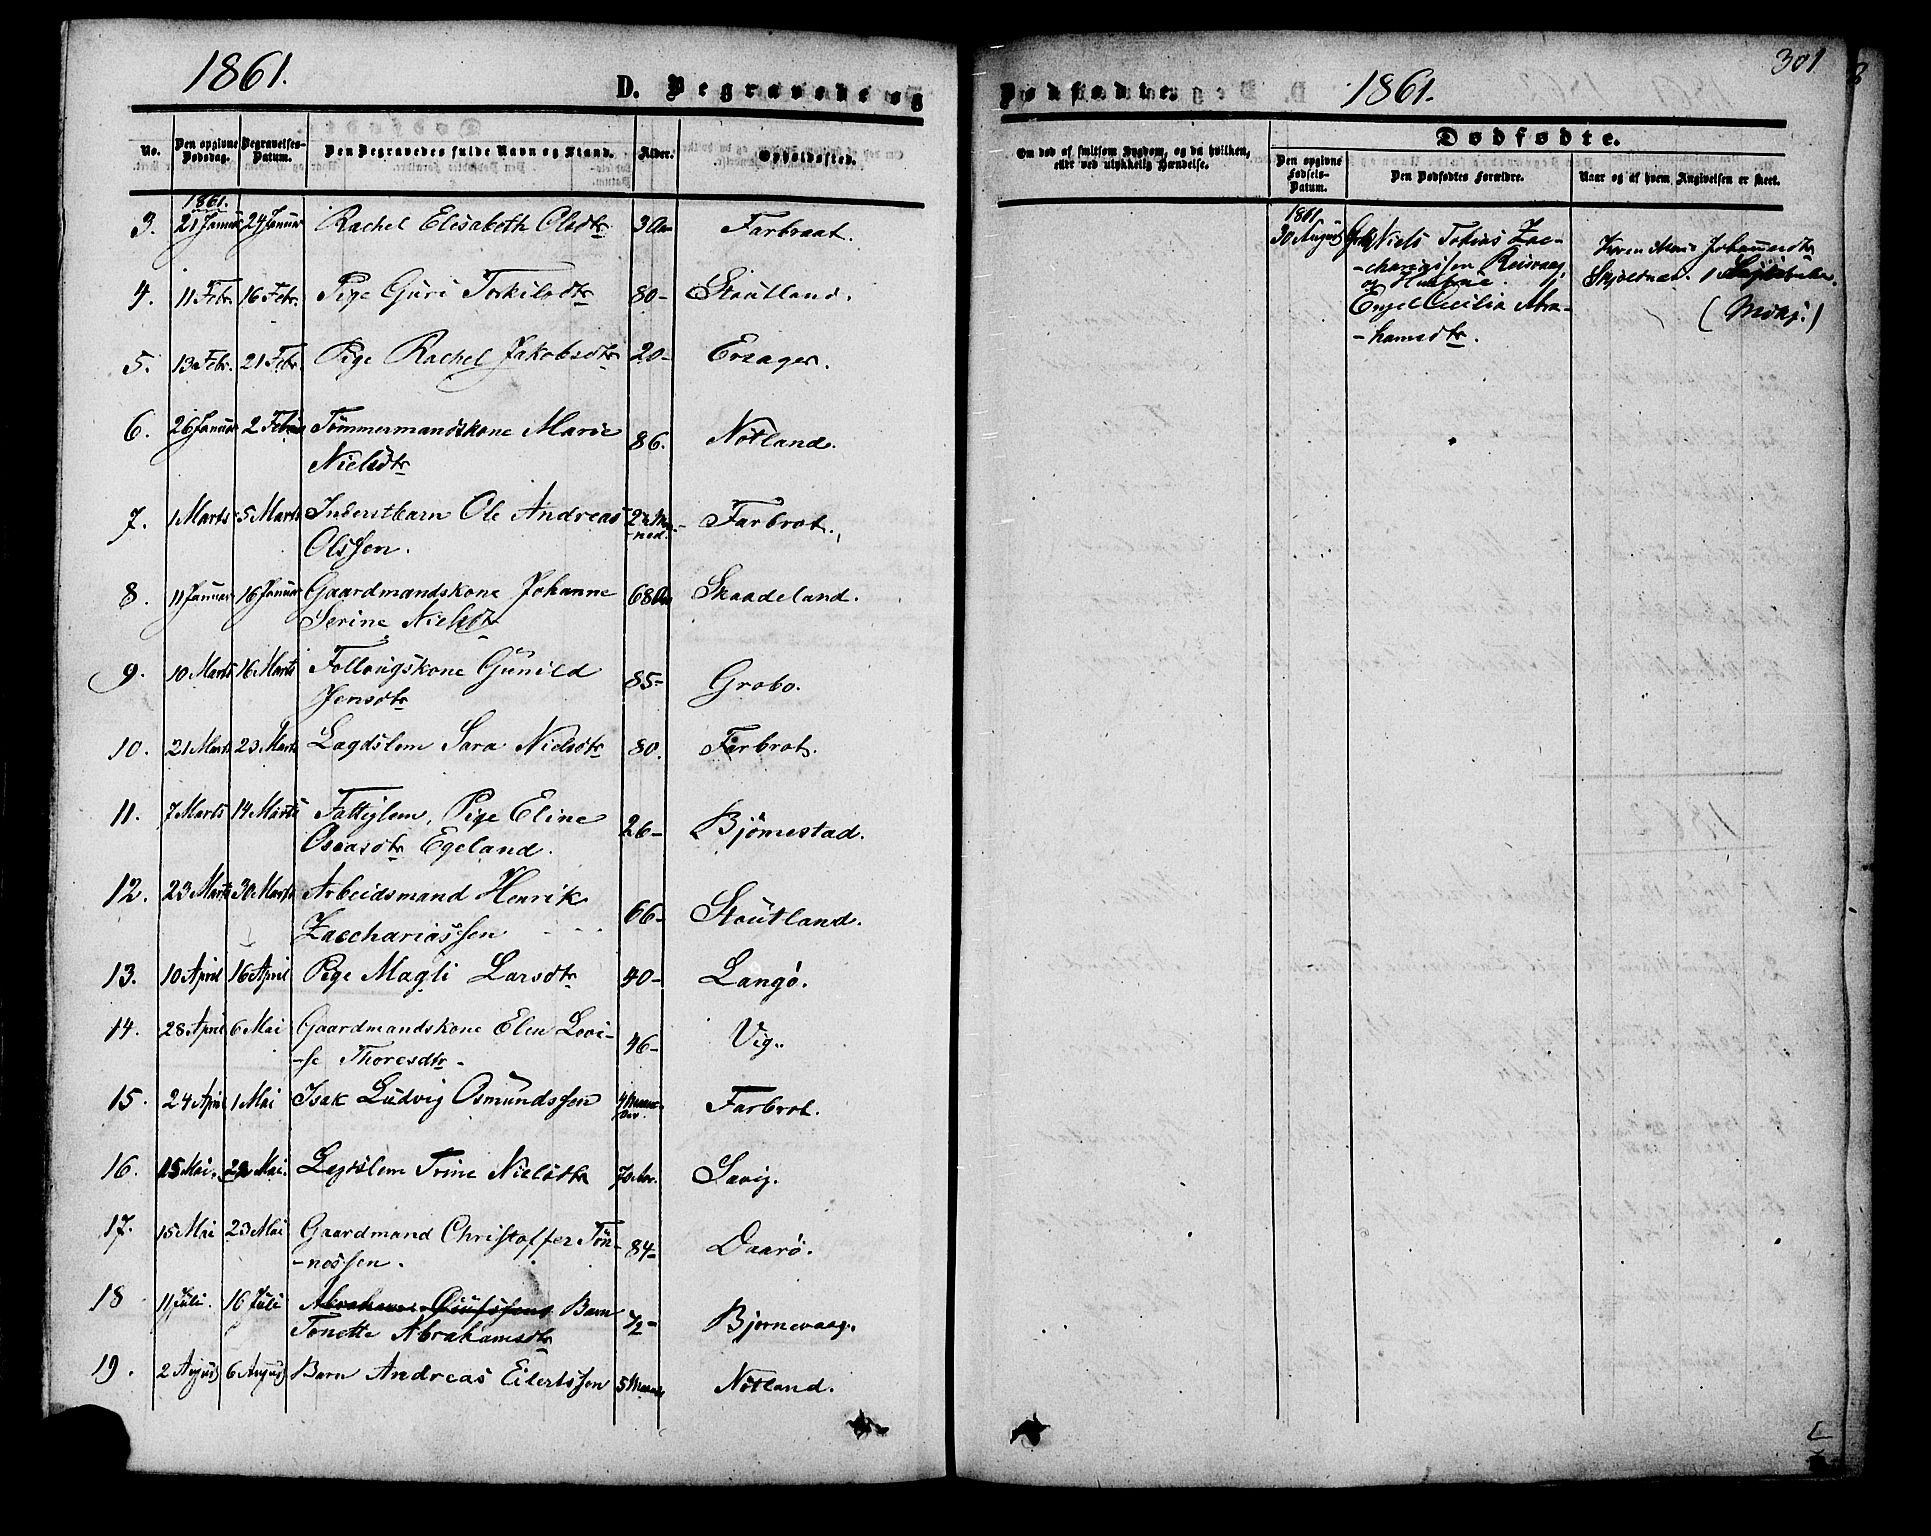 1861.
D. Begravede og
No.
Den opgivne Dødsdag.
Begravelses-Datum.
Den Begravedes fulde Navn og Stand.
Alder.
Opholdssted.
1861.
3. 21 Januar 24 Januar Rachel Elisabeth Olsdtr Farbraat.
4. 11 Febr. 16 Febr. Pige Guri Torkilsdtr 80- Stoutland.
5. 13 Febr. 21 Febr. Pige Rachel Jakobsdtr 20- Ersager.
6. 26 Januar 2 Februar Tømmermandskone Marie
Nielsdtr 86. Nötland.
7. 1 Marts 5 Marts Inderstbarn Ole Andreas
Olssen. Farbrot.
8. 11 Januar 16 Januar Gaardmandskone Johanne 68 Aar Skaadeland.
Serine Nielsdtr
9. 10 Marts 16 Marts Follougskone Gunild
Jensdtr 85- Grobo.
10. 21 Marts 23 Marts Lægdslem Sara Nielsdtr 80. Farbrot.
11. 7 Marts 14 Marts Fattiglem, Pige Eline
Oseasdtr Egeland. 26- Bjömestad.
12. 23 Marts 30 Marts Arbeidsmand Henrik
Zacchariassen 66- Stoutland.
13. 10 April 16 April Pige Magli Larsdtr 40- Langø.
14. 28 April 6 Mai Gaardmandskone Elen Lovi-
-se Thoresdtr- 46- Vig.
15. 24 April 1 Mai Isak Ludvig Osmundssen Farbrot.
16. 15 Mai. Mai. Legdslem Trine Nielsdtr Savig.
17. 15 Mai 23 Mai Gaardmand Christoffer Tön-
-nessen. 84- Daarø.
18 11 Juli. 16 Juli Barn
Tonette Abrahamsdtr Bjørnevaag.
19. 2 August 6 August Barn Andreas Eilertssen Nötland.
Dødfødte.
1861.
301
Om død af smitsom Sygdom, og da hvilken,
eller ved ulykkelig Hændelse.
Dødfødte.
Den opgivne Fødsels-Datum.
Den Dødfødtes Forældre.
Naar og af hvem Angivelsen er skeet.
1861
30 August Niels Tobias Zac-
-chariassen Reisvaag
og Hustrue
Engel Cecilia Abra-
-hamsdtr.
Johannesdtr
(Mdhj.)
1862